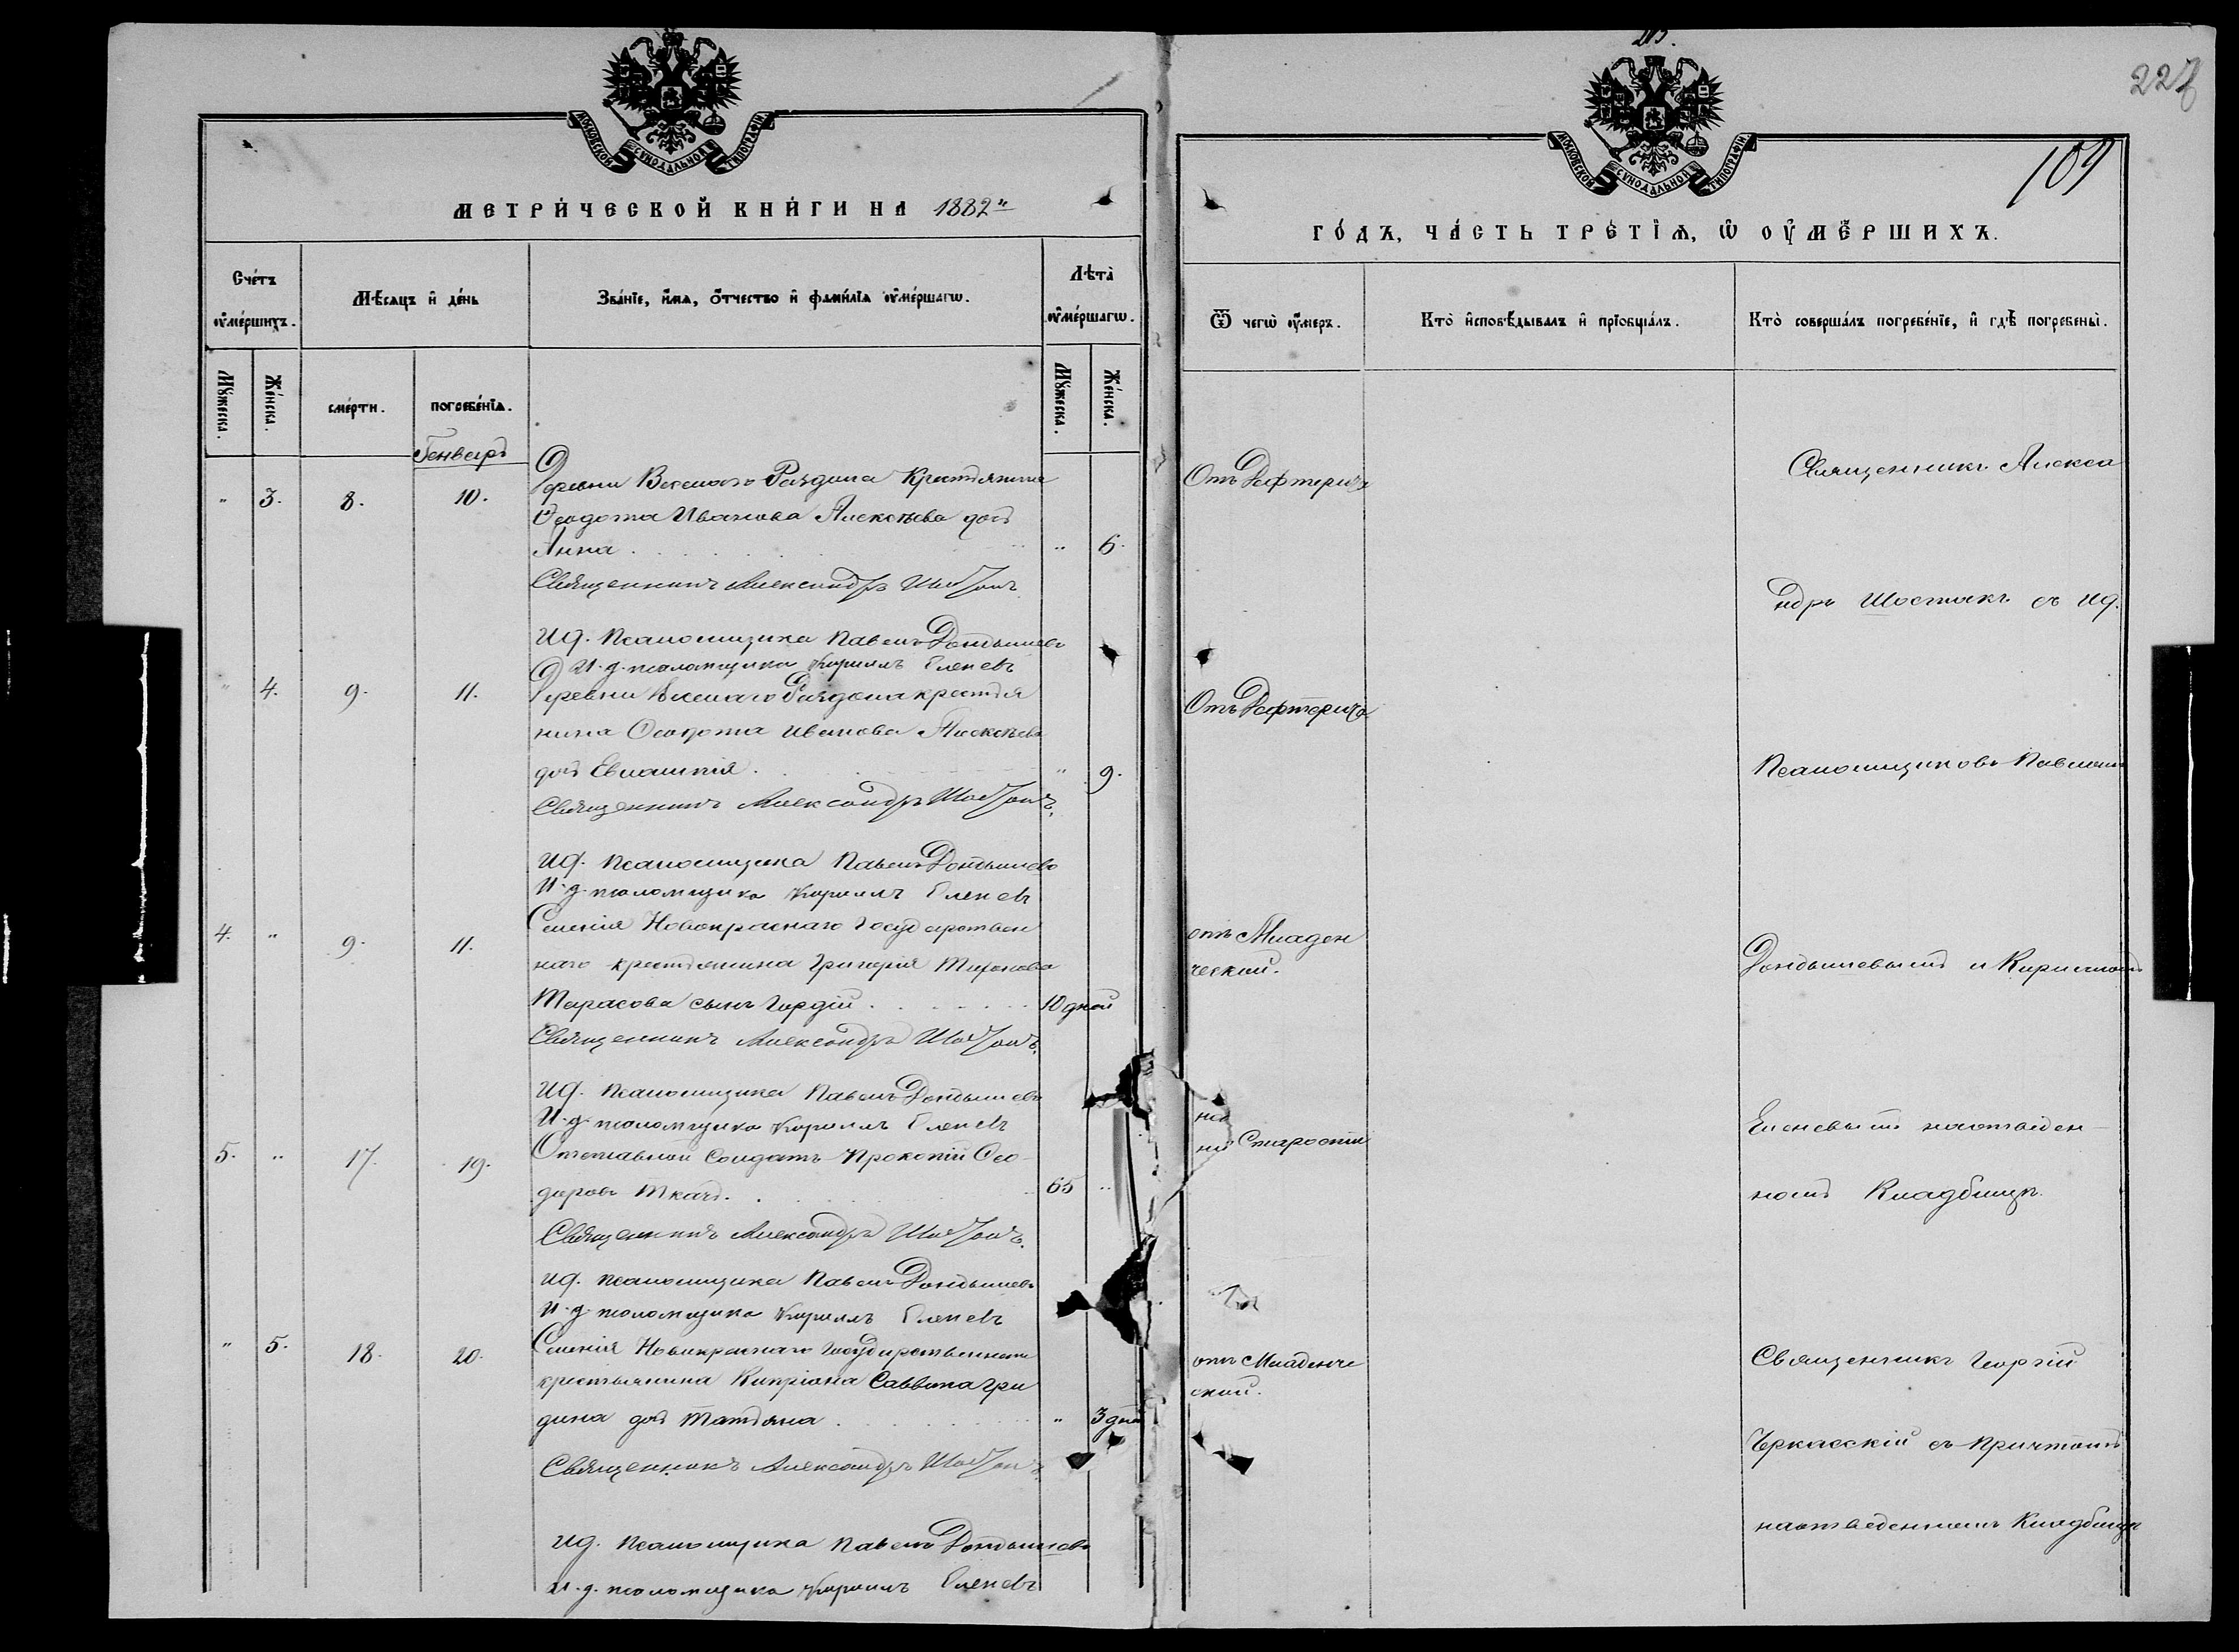 МОСКОВСКОЙ СѴНОДАЛЬНОЙ ТИПОГРАФІИ
МЕТРИ́ЧЕСКОЙ КНИ́ГИ НА 1882"
Сче́тъ ᲂу҆ме́ршихъ.
Мѣ́сяцъ и҆ де́нь
Зва́нїе, и҆́мѧ, ѻ҆́тчество и҆ фами́лїѧ ᲂу҆ме́ршагѡ.
Лѣ́та ᲂу҆ме́ршагѡ.
Мꙋ́жеска.
Же́нска.
сме́рти.
погребе́нїѧ.
Мꙋ́жеска.
Же́нска.
Генварь
" 3. 8. 10.
Деревни Веселаго Раздола Крестьянина
Ѳеодота Иванова Алексѣева дочь
Анна . . . " 6.
Священникъ Александръ Шостакъ
И.д. Псаломщика Павелъ Дондышевъ
И.д. псаломщика Кириллъ Еленевъ
" 4. 9. 11.
Деревни Веселаго Раздола крестья
нина Ѳеодота Иванова Алексѣева
дочь Евлампія . . . " 9.
Священникъ Александръ Шостакъ.
И.д. Псаломщика Павелъ Дондышевъ
И.д. псаломщика Кириллъ Еленевъ
4. " 9. 11.
Селенія Новокраснаго Государствен
наго крестьянина Григорія Миронова
Тарасова сынъ Гордій . . . 10 дней
Священникъ Александръ Шостакъ.
И.д. Псаломщика Павелъ Дондышевъ
И.д. псаломщика Кириллъ Еленевъ
5. " 17. 19.
Отставной Солдатъ Прокопій Ѳео-
доровъ Ткачь. . . . 65 "
Священникъ Александръ Шостакъ.
И.д. Псаломщика Павелъ Дондышевъ
И.д. псаломщика Кириллъ Еленевъ
" 5. 18. 20.
Селенія Новокраснаго Государственнаго
крестьянина Кипріана Саввина Гри
дина дочь Татьяна . . . " 3 дней
Священникъ Александръ Шостакъ.
И.д. Псаломщика Павелъ Дондышевъ
И.д. псаломщика Кириллъ Еленевъ
227
109
МОСКОВСКОЙ СѴНОДАЛЬНОЙ ТИПОГРАФІИ
ГО́ДЪ, ЧА́СТЬ ТРЕ́ТЇѦ, Ѡ҆ ОУ҆МЕ́РШИХЪ.
Ѿ чегѡ̀ ᲂу҆́меръ.
Кто̀ и҆сповѣ́дывалъ и҆ прїѡбща́лъ.
Кто̀ соверша́лъ погребе́нїе, и҆ гдѣ̀ погребены̀.
Отъ Дефтерита
Священникъ Алекса
ндръ Шостакъ съ И.д.
Отъ Дефтерита
Псаломщиковъ Павломъ
отъ Младен
ческой.
Дондышевымъ и Кирилломъ
Старости
Еленевымъ наотведен-
номъ Кладбищѣ.
отъ Младенче
ской.
Священникъ Георгій
Черкасскій съ Причтомъ
наотведенномъ Кладбищѣ